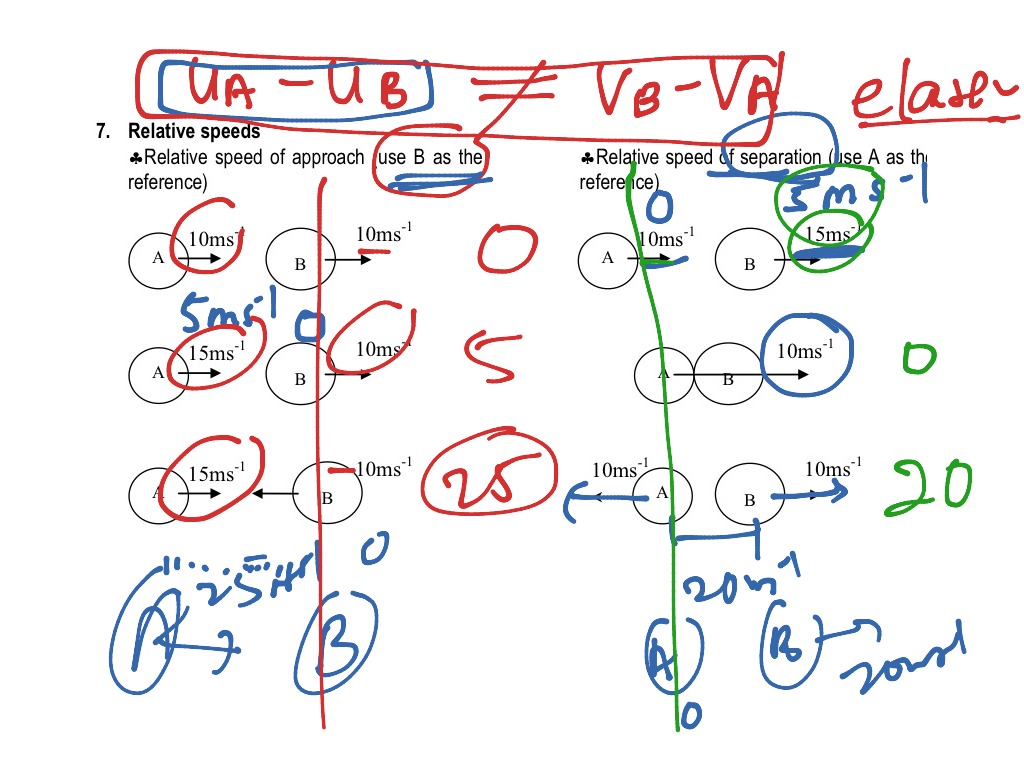 U_A - U_B = V_B - V_A
7. Relative speeds
♣Relative speed of approach (use B as the reference)
A 10ms⁻¹ B 10ms⁻¹ 0
5ms⁻¹ 0
A 15ms⁻¹ B 10ms⁻¹ 5
A 15ms⁻¹ B 10ms⁻¹ 25
0
A B
♣Relative speed of separation (use A as the
reference)
0 5ms⁻¹
A 10ms⁻¹ B 15ms⁻¹
A B 10ms⁻¹ 0
10ms⁻¹ A B 10ms⁻¹ 20
20m⁻¹
A B
0